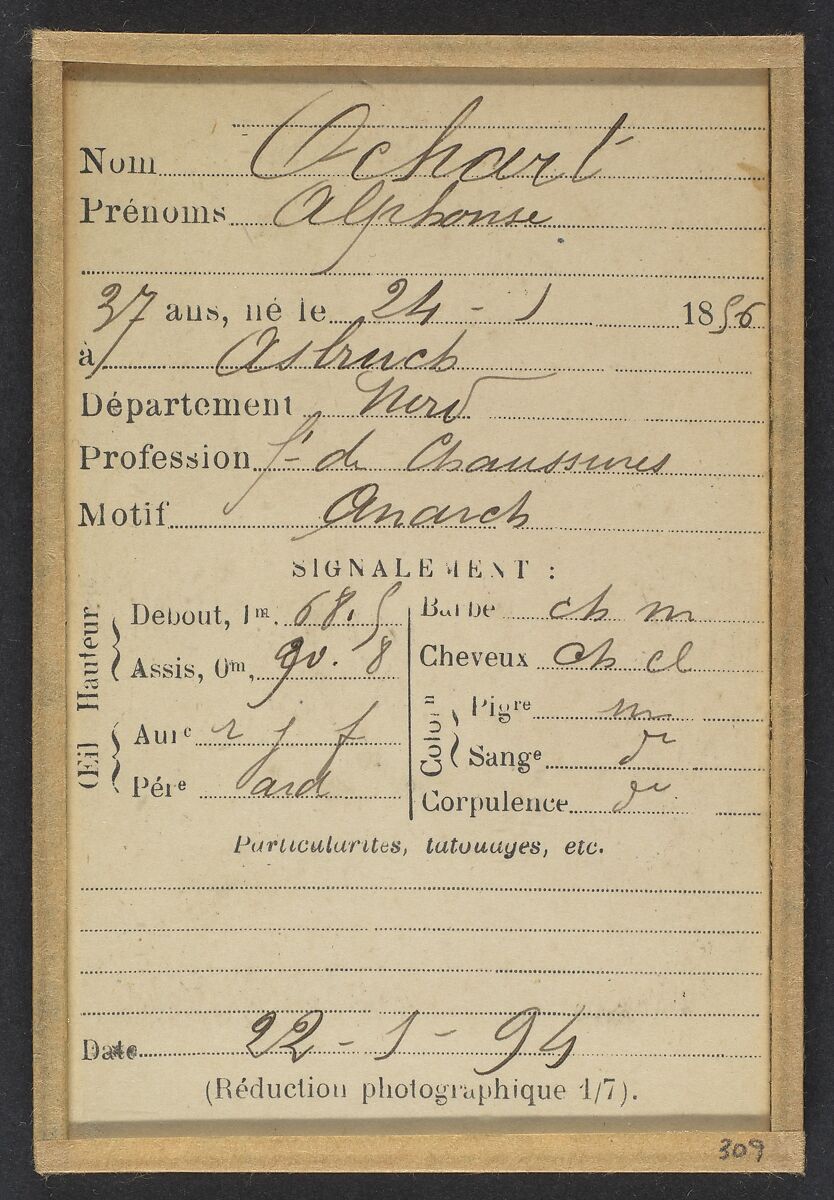 Nom Ochart
Prénoms Alphonse
37 ans, né le 24 - 1 1856
à Asbruch
Département Nord
Profession ft de Chaussures
Motif Anarch
SIGNALEMENT :
Hauteur
Debout, 1m. 68.5
Assis, 0m, 90.8
Œil
Aure r j f
Pére ard
Barbe ch m
Cheveux ch cl
Colorn
Pigre m
Sange do
Corpulence do
Particularités, tatouages, etc.
Date 22 - 1 - 94
(Réduction photographique 1/7).
309